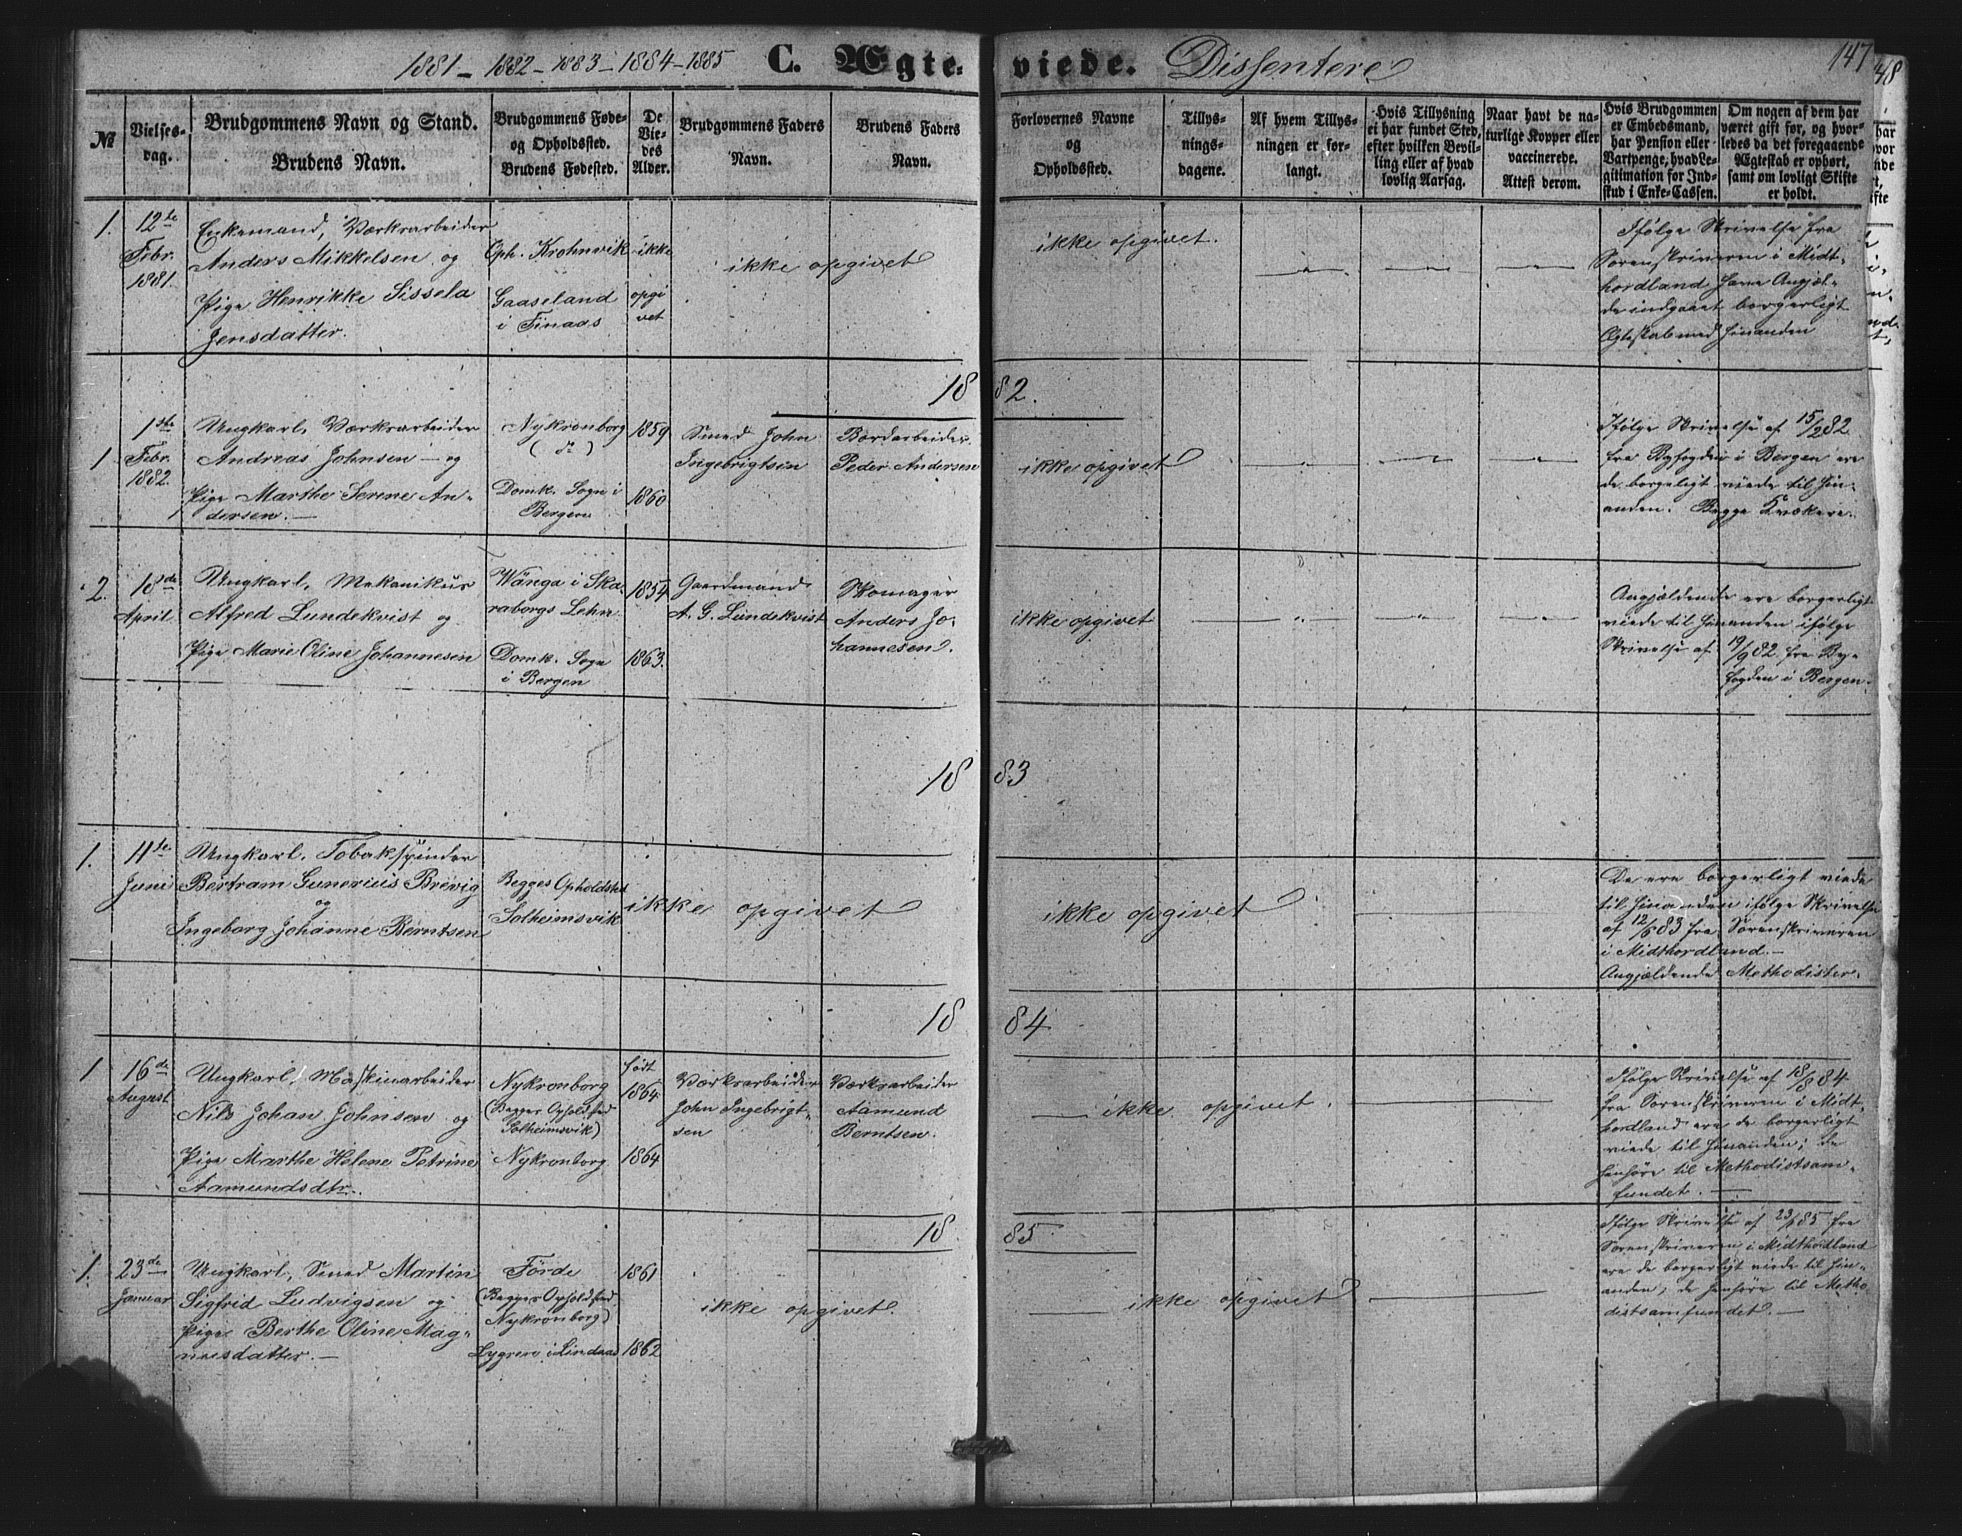 1881 - 1882 - 1883 - 1884 - 1885 C. Ægteviede. Dissentere 147
48
№
Vielses-dag.
Brudgommens Navn og Stand.
Brudens Navn.
Brudgommens Føde- og Opholdssted.
Brudens Fødested.
De Viedes Alder.
Brudgommens Faders Navn.
Brudens Faders Navn.
Forlovernes Navne og Opholdssted.
Tillysningsdagene.
Af hvem Tillysningen er forlangt.
Hvis Tillysning ei har fundet Sted, efter hvilken Bevilling eller af hvad lovlig Aarsag.
Naar havt de naturlige Kopper eller vaccinerede. Attest derom.
Hvis Brudgommen er Embedsmand, har Pension eller Vartpenge, hvad Legitimation for Indskud i Enke-Cassen.
Om nogen af dem har været gift før, og hvorledes da det foregaaende Ægteskab er ophørt, samt om lovligt Skifte er holdt.
1. 12te Febr. 1881.
Enkemand, Værksarbeider
Anders Mikkelsen og
Pige Henrikke Sissela
Jensdatter.
Oph. Krohnvik
Gaaseland
i Finaas
ikke
opgi
vet
ikke opgivet
ikke opgivet.
Ifølge Skrivelse fra
Sorenskriveren i Midt-
hordland have Angjæl-
de indgaaet borgerligt
Ægteskab med hinanden
1882.
1 1ste Febr. 1882.
Ungkarl, Værksarbeider
Andreas Johnsen - og
Pige Marthe Serine An-
dersen. -
Nykronborg
(do)
Domk. Sogn i
Bergen
1859
1860
Smed John
Ingebrigtsen
Bordarbeider
Peder Andersen
ikke opgivet
Ifølge Skrivelse af 15/2 82
fra Byfogden i Bergen ere
de borgeligt viede til hin-
anden. Begge Kvækere.
2. 18de April
Ungkarl, Mekanikus
Alfred Lundekvist og
Pige Marie Oline Johannesen
Wånga i Ska-
raborgs Lehn
Domk. Sogn
i Bergen
1854
1863.
Gaardmand
A. G. Lundekvist
Skomager
Anders Jo-
hannesen.
ikke opgivet
Angjældende ere borgerligt
viede til hinanden ifølge
Skrivelse af 19/9 82. fra By-
fogden i Bergen.
1883
1. 11te Juni
Ungkarl. Tobakspinder
Bertram Gunerius Brevig
og
Ingeborg Johanne Berntsen
Begges Opholdsted
Solheimsvik
ikke opgivet
ikke opgivet
De ere borgerligt viede
til hinanden ifølge Skrivelse
af 12/6 83 fra Sorenskriveren
i Midthordland. -
Angjældende Methodister.
1884
1 16de August
Ungkarl, Maskinarbeider
Nils Johan Johnsen og
Pige Marthe Helene Petrine
Aamundsdtr.
Nykronborg
(Begges Opholdsted
Solheimsvik)
Nykronborg
født
1864
1864
Værksarbeider
John Ingebrigt-
sen
Værksarbeider
Aamund
Berntsen.
ikke opgivet.
Ifølge Skrivelse af 18/8 84
fra Sorenskriveren i Midt-
hordland ere de borgerligt
viede til hinanden; de
henhøre til Methodistsam-
fundet. -
1885
1. 23de Januar
Ungkarl, Smed Martin
Sigfrid Ludvigsen og
Pige Berthe Oline Mag-
nusdatter. -
Førde
(Begges Opholdsted
Nykronborg)
Lygren i Lindaas
1861
1862
ikke opgivet.
ikke opgivet
Ifølge Skrivelse af 23/1 85 fra
Sorenskriveren i Midthordland
ere de borgerligt viede til hin-
anden, de henhøre til Metho-
distsamfundet. -